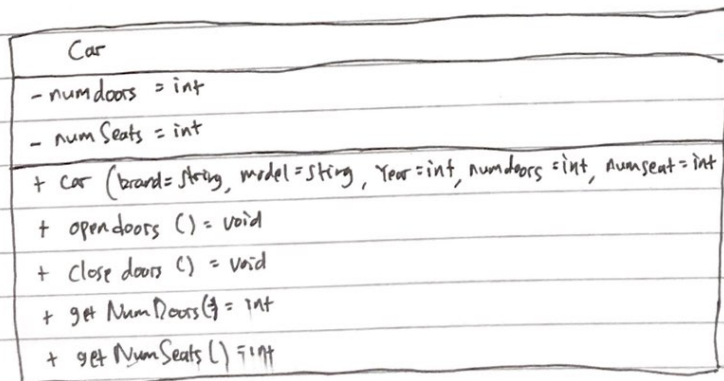 Car
- numdoors = int
- numSeats = int
+ car (brand= string, model= string, Year = int, numdoors = int, numseat = int
+ opendoors () = void
+ close doors () = void
+ get NumDoors() = int
+ get NumSeats () = int